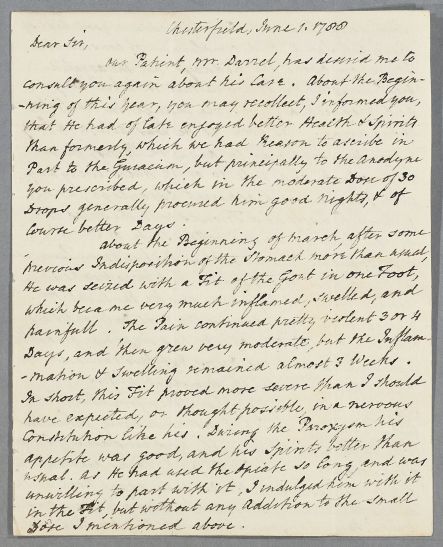 Chesterfield, June 1. 1788
Dear Sir,
our Patient, Mr. Darrel, has desired me to
consult you again about his Case. About the Begin-
-ning of this year, you may recollect, I informed you,
that He had of late enjoyed better Health & Spirits
than formerly, which we had Reason to ascribe in
Part to the Guiacum, but principally to the Anodyne
you prescribed, which in the moderate Dose of 30
Drops generally procured him good Nights, & of
Course better Days.
about the Beginning of March, after some
previous Indisposition of the Stomach more than usual,
He was seized with a Fit of the Gout in one Foot,
which became very much inflamed, swelled, and
painfull. The Pain continued pretty violent 3 or 4
Days, and then grew very moderate, but the Inflam-
-mation & Swelling remained almost 3 Weeks.
In short, this Fit proved more severe than I should
have expected, or thought possible, in a nervous
Constitution like his. During the Paroxysm his
appetite was good, and his Spirits better than
usual. As He had used the Opiate so long, and was
unwilling to part with it, I indulged him with it
in the Fit, but without any Addition to the small
Dose I mentioned above.